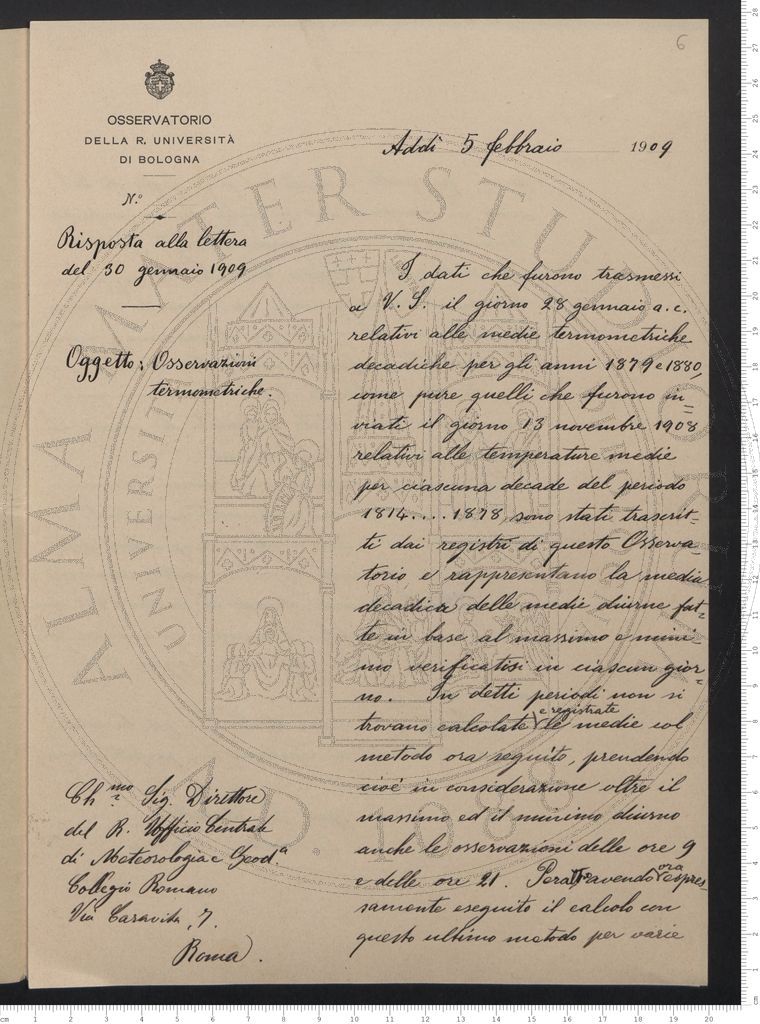 6
OSSERVATORIO
DELLA R. UNIVERSITÀ
DI BOLOGNA
N.º
Addì 5 febbraio 1909
Risposta alla lettera
del 30 gennaio 1909
Oggetto: Osservazioni
termometriche.
I dati che furono trasmessi
a V. S. il giorno 28 gennaio a. c.
relativi alle medie termometriche
decadiche per gli anni 1879 e 1880,
come pure quelli che furono in=
viati il giorno 13 novembre 1908
relativi alle temperature medie
per ciascuna decade del periodo
1814....1878, sono stati trascrit-
ti dai registri di questo Osserva-
torio e rappresentano la media
decadica delle medie diurne fat-
te in base al massimo e mini-
mo verificatisi in ciascun gior-
no. In detti periodi non si
trovano calcolate e registrate le medie col
metodo ora seguito, prendendo
cioè in considerazione oltre il
massimo ed il minimo diurno
anche le osservazioni delle ore 9
e delle ore 21. avendo ora espres-
samente eseguito il calcolo con
questo ultimo metodo per varie
Ch.mo Sig. Direttore
del R. Ufficio Centrale
di Meteorologia e Geod.a
Collegio Romano
Via Caravita, 7.
Roma.
ALMA MATER STUDIORUM
A.D. 1088